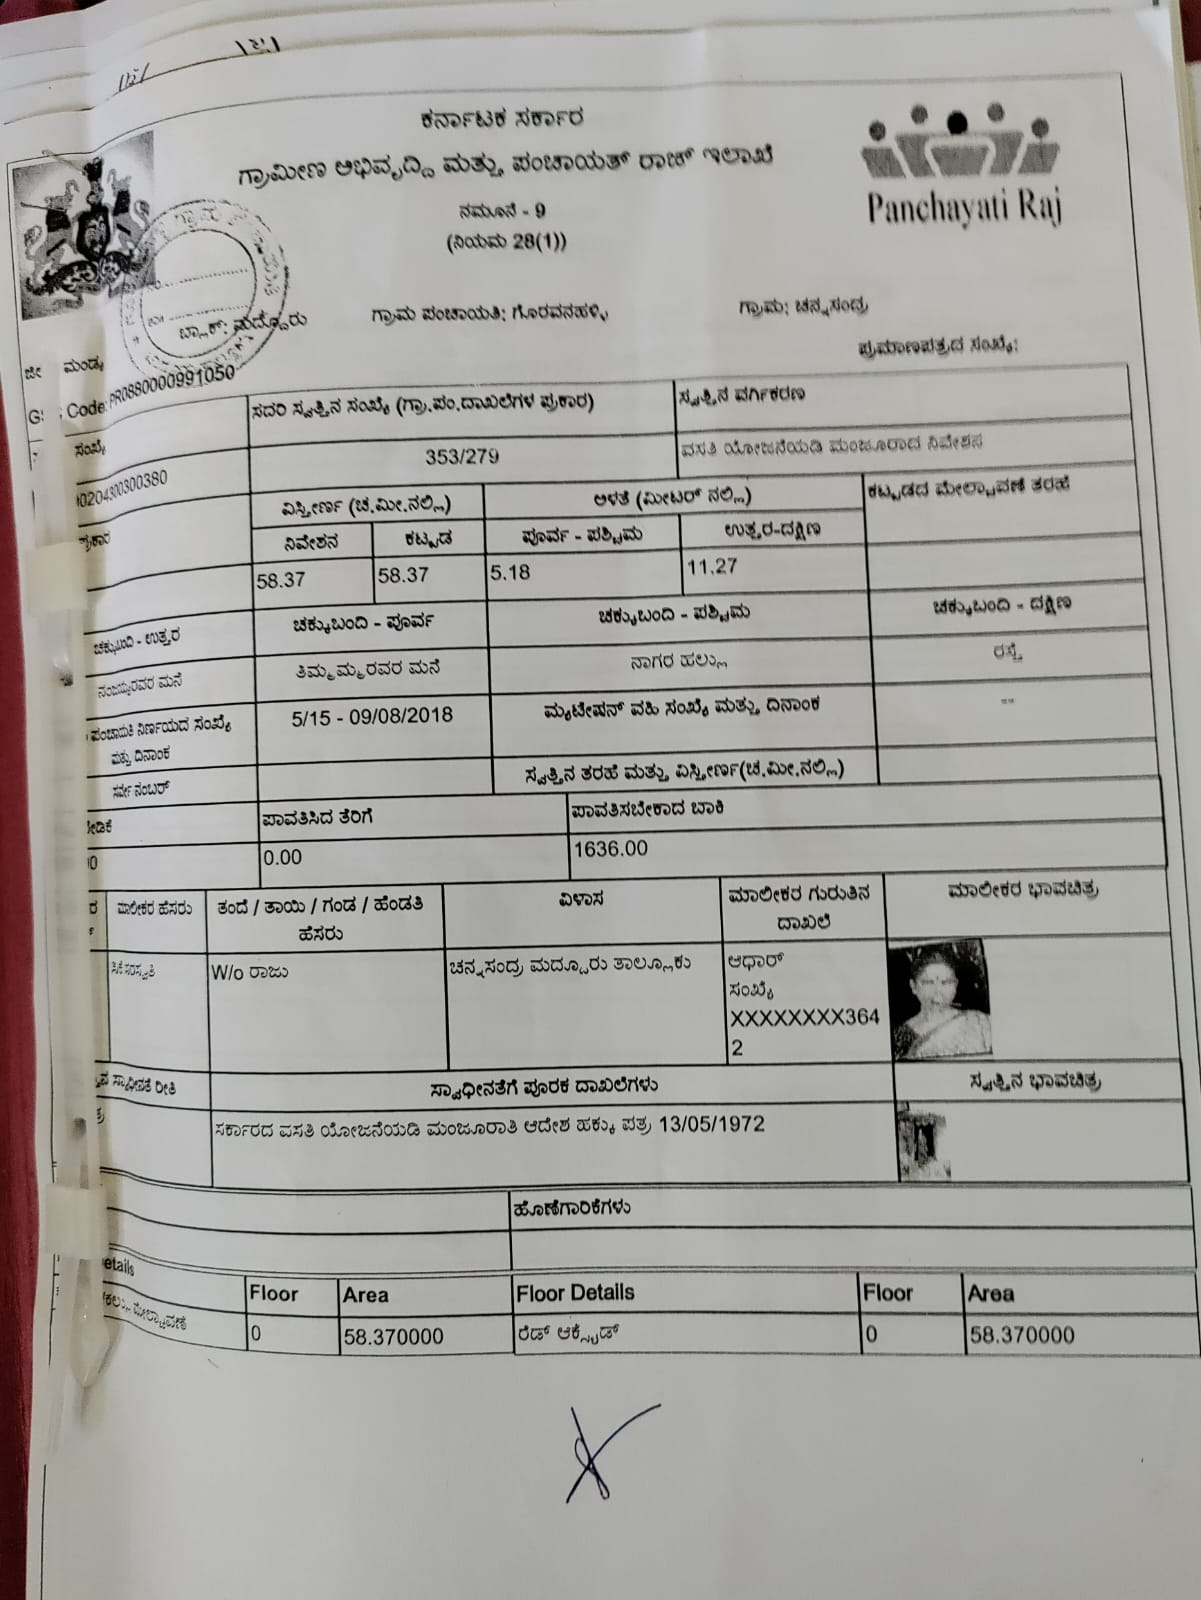 ಕರ್ನಾಟಕ ಸರ್ಕಾರ
ಗ್ರಾಮೀಣ ಅಭಿವೃದ್ದಿ ಮತ್ತು ಪಂಚಾಯತ್ ರಾಜ್ ಇಲಾಖೆ
Panchayati Raj
ನಮೂನೆ - 9
(ನಿಯಮ 28(1))
ಮಂಡ್ಯ
ಬ್ಲಾಕ್: ಮದ್ದೂರು
ಗ್ರಾಮ ಪಂಚಾಯತಿ: ಗೊರವನಹಳ್ಳಿ
ಗ್ರಾಮ: ಚನ್ನಸಂದ್ರ
Code: PR0880000991050
ಪ್ರಮಾಣಪತ್ರದ ಸಂಖ್ಯೆ:
ಸಂಖ್ಯೆ
ಸದರಿ ಸ್ವತ್ತಿನ ಸಂಖ್ಯೆ (ಗ್ರಾ.ಪಂ.ದಾಖಲೆಗಳ ಪ್ರಕಾರ)
ಸ್ವತ್ತಿನ ವರ್ಗಿಕರಣ
0204300300380
353/279
ವಸತಿ ಯೋಜನೆಯಡಿ ಮಂಜೂರಾದ ನಿವೇಶನ
ಪ್ರಕಾರ
ವಿಸ್ತೀರ್ಣ (ಚ.ಮೀ.ನಲ್ಲಿ)
ಅಳತೆ (ಮೀಟರ್ ನಲ್ಲಿ)
ಕಟ್ಟಡದ ಮೇಲ್ಚಾವಣಿ ತರಹೆ
ನಿವೇಶನ
ಕಟ್ಟಡ
ಪೂರ್ವ - ಪಶ್ಚಿಮ
ಉತ್ತರ-ದಕ್ಷಿಣ
58.37
58.37
5.18
11.27
ಚಕ್ಕುಬಂದಿ - ಉತ್ತರ
ಚಕ್ಕುಬಂದಿ - ಪೂರ್ವ
ಚಕ್ಕುಬಂದಿ - ಪಶ್ಚಿಮ
ಚಕ್ಕುಬಂದಿ - ದಕ್ಷಿಣ
ನಂಜಯ್ಯರವರ ಮನೆ
ತಿಮ್ಮಮ್ಮರವರ ಮನೆ
ನಾಗರ ಹಲ್ಲು
ರಸ್ತೆ
ಪಂಚಾಯತಿ ನಿರ್ಣಯದ ಸಂಖ್ಯೆ
ಮತ್ತು ದಿನಾಂಕ
5/15 - 09/08/2018
ಮ್ಯುಟೇಷನ್ ವಹಿ ಸಂಖ್ಯೆ ಮತ್ತು ದಿನಾಂಕ
--
ಸರ್ವೇ ನಂಬರ್
ಸ್ವತ್ತಿನ ತರಹೆ ಮತ್ತು ವಿಸ್ತೀರ್ಣ(ಚ.ಮೀ.ನಲ್ಲಿ)
ಪಾವತಿಸಿದ ತೆರಿಗೆ
ಪಾವತಿಸಬೇಕಾದ ಬಾಕಿ
0.00
1636.00
ಮಾಲೀಕರ ಹೆಸರು
ತಂದೆ / ತಾಯಿ / ಗಂಡ / ಹೆಂಡತಿ
ಹೆಸರು
ವಿಳಾಸ
ಮಾಲೀಕರ ಗುರುತಿನ
ದಾಖಲೆ
ಮಾಲೀಕರ ಭಾವಚಿತ್ರ
W/o ರಾಜು
ಚನ್ನಸಂದ್ರ ಮದ್ದೂರು ತಾಲ್ಲೂಕು
ಆಧಾರ್
ಸಂಖ್ಯೆ
XXXXXXXX364
2
ಸ್ವಾಧೀನತೆ ರೀತಿ
ಸ್ವಾಧೀನತೆಗೆ ಪೂರಕ ದಾಖಲೆಗಳು
ಸ್ವತ್ತಿನ ಭಾವಚಿತ್ರ
ಸರ್ಕಾರದ ವಸತಿ ಯೋಜನೆಯಡಿ ಮಂಜೂರಾತಿ ಆದೇಶ ಹಕ್ಕು ಪತ್ರ 13/05/1972
ಹೊಣೆಗಾರಿಕೆಗಳು
Floor
Area
Floor Details
Floor
Area
0
58.370000
ರೆಡ್ ಆಕ್ಸೈಡ್
0
58.370000